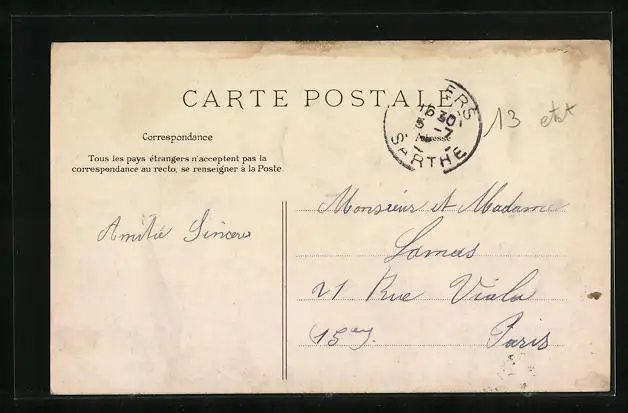 CARTE POSTALE
ERS
16 30
5 - 7
SARTHE
Adresse
13
Correspondance
Tous les pays étrangers n'acceptent pas la
correspondance au recto, se renseigner à la Poste.
Amitié Sincère
Monsieur et Madame
Lamus
21 Rue Viala
15ay. Paris